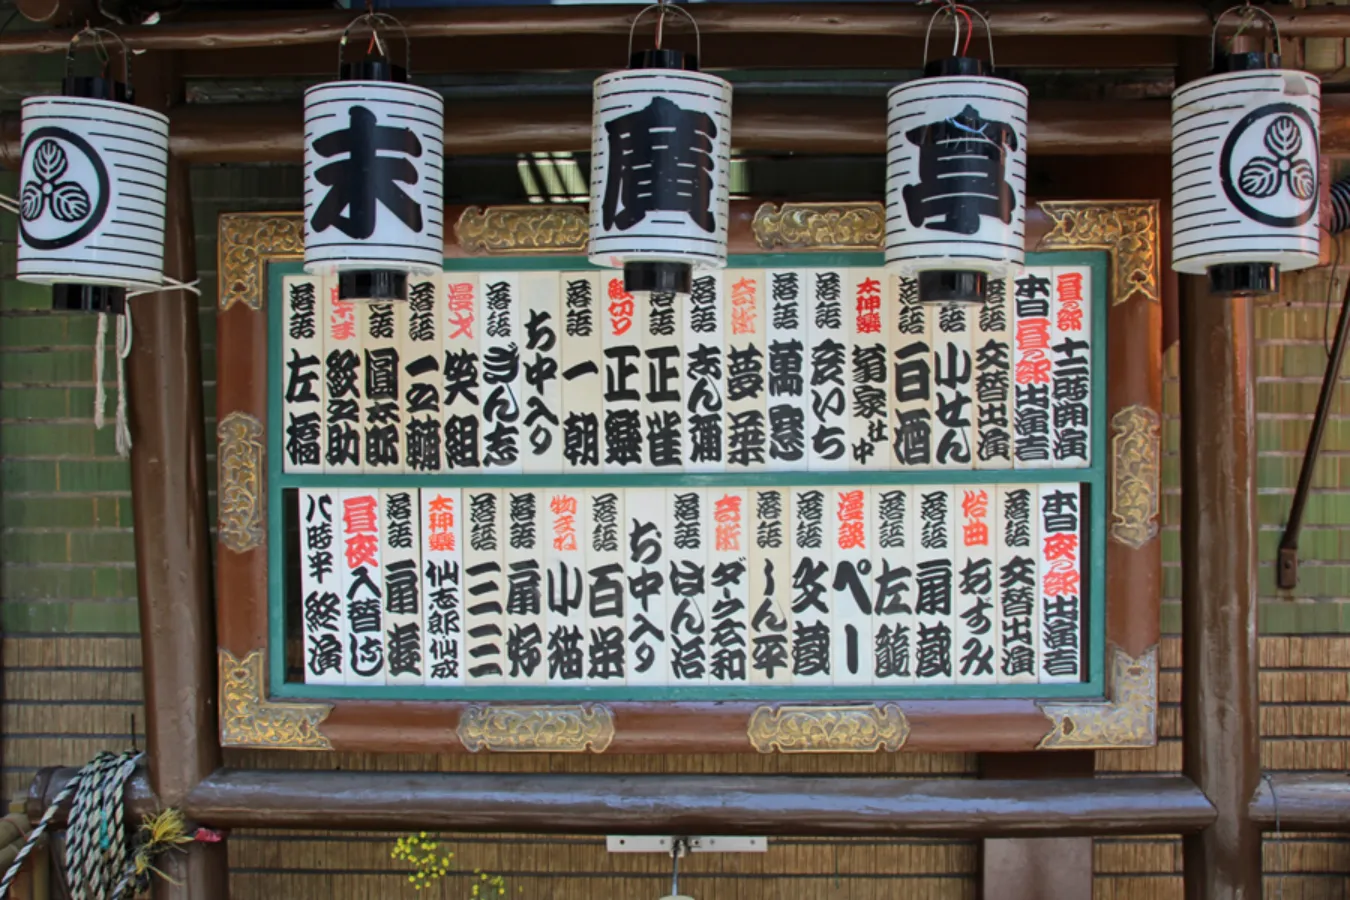 末廣亭
昼の部 十二時開演
本日昼の部出演者
落語 交替出演
落語 小せん
落語 白酒
太神樂 翁家社中
落語 彦いち
落語 萬窓
奇術 夢葉
落語 志ん彌
落語 正雀
紙切り 正樂
落語 一朝
お中入り
落語 ぎん志
漫才 笑組
落語 一之輔
落語 圓太郎
曲ごま 紋之助
落語 左橋
本日夜の部出演者
落語 交替出演
俗曲 あずみ
落語 扇蔵
落語 左龍
漫談 ペー
落語 文蔵
落語 しん平
奇術 ダーク広和
落語 はん治
お中入り
落語 百栄
物まね 小猫
落語 扇好
落語 三三
太神樂 仙志郎 仙成
落語 扇遊
昼夜入替なし
八時半 終演